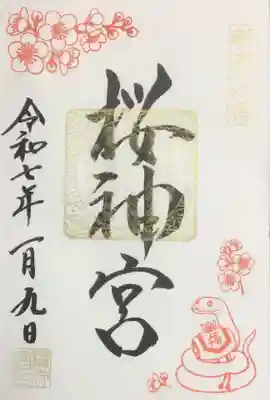 桜神宮
令和七年一月九日